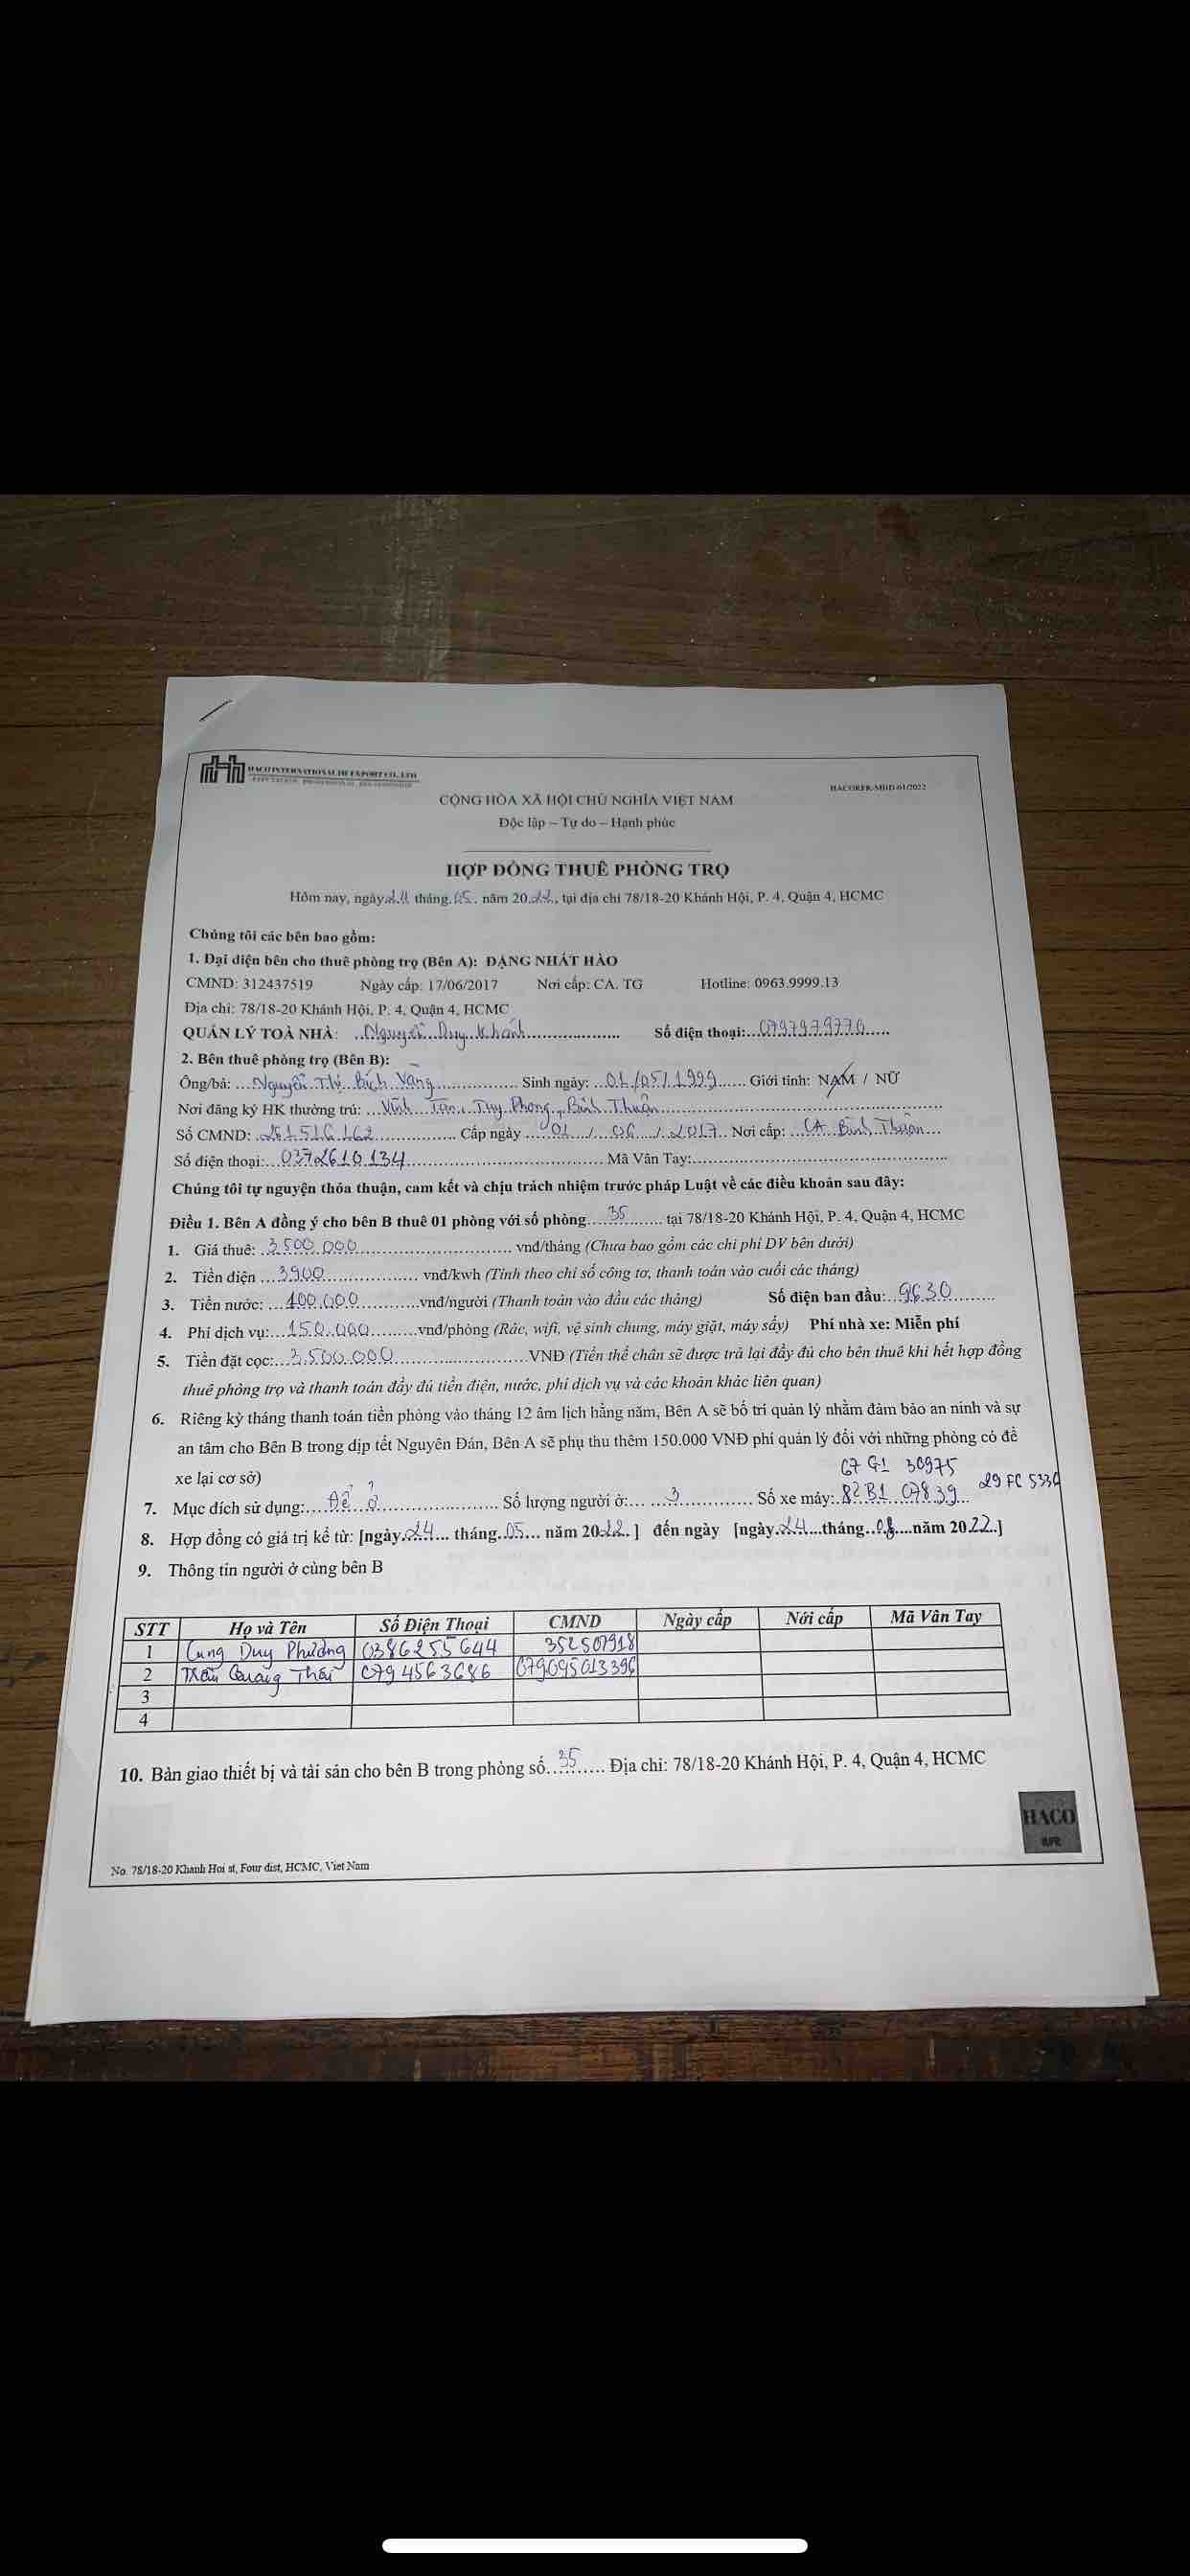 HACO INTERNATIONAL IM EXPORT CO., LTD
HACORER-MHD 01/2022
CỘNG HÒA XÃ HỘI CHỦ NGHĨA VIỆT NAM
Độc lập – Tự do – Hạnh phúc
HỢP ĐỒNG THUÊ PHÒNG TRỌ
Hôm nay, ngày 24 tháng 05 năm 2022, tại địa chỉ 78/18-20 Khánh Hội, P. 4, Quận 4, HCMC
Chúng tôi các bên bao gồm:
1. Đại diện bên cho thuê phòng trọ (Bên A): ĐẶNG NHẤT HÀO
CMND: 312437519 Ngày cấp: 17/06/2017 Nơi cấp: CA. TG Hotline: 0963.9999.13
Địa chỉ: 78/18-20 Khánh Hội, P. 4, Quận 4, HCMC
QUẢN LÝ TOÀ NHÀ: Nguyễn Duy Khánh Số điện thoại: 0797979770
2. Bên thuê phòng trọ (Bên B):
Ông/bà: Nguyễn Thị Bích Vâng Sinh ngày: 01/05/1999 Giới tính: NAM / NỮ
Nơi đăng ký HK thường trú: Vĩnh Tân, Tuy Phong, Bình Thuận
Số CMND: 261516162 Cấp ngày 01 / 06 / 2017 Nơi cấp: CA Bình Thuận
Số điện thoại: 0372610134 Mã Vân Tay:
Chúng tôi tự nguyện thỏa thuận, cam kết và chịu trách nhiệm trước pháp Luật về các điều khoản sau đây:
Điều 1. Bên A đồng ý cho bên B thuê 01 phòng với số phòng 35 tại 78/18-20 Khánh Hội, P. 4, Quận 4, HCMC
1. Giá thuê: 3.500.000 vnđ/tháng (Chưa bao gồm các chi phí DV bên dưới)
2. Tiền điện 3900 vnđ/kwh (Tính theo chỉ số công tơ, thanh toán vào cuối các tháng)
3. Tiền nước: 100.000 vnđ/người (Thanh toán vào đầu các tháng) Số điện ban đầu: 9630
4. Phí dịch vụ: 150.000 vnđ/phòng (Rác, wifi, vệ sinh chung, máy giặt, máy sấy) Phí nhà xe: Miễn phí
5. Tiền đặt cọc: 3.500.000 VNĐ (Tiền thế chân sẽ được trả lại đầy đủ cho bên thuê khi hết hợp đồng
thuê phòng trọ và thanh toán đầy đủ tiền điện, nước, phí dịch vụ và các khoản khác liên quan)
6. Riêng kỳ tháng thanh toán tiền phòng vào tháng 12 âm lịch hằng năm, Bên A sẽ bố trí quản lý nhằm đảm bảo an ninh và sự
an tâm cho Bên B trong dịp tết Nguyên Đán, Bên A sẽ phụ thu thêm 150.000 VNĐ phí quản lý đối với những phòng có để
xe lại cơ sở)
67 G1 30975
7. Mục đích sử dụng: Để ở Số lượng người ở: 3 Số xe máy: 82B1 07839 29 FC 5330
8. Hợp đồng có giá trị kể từ: [ngày 24 tháng 05 năm 2022 ] đến ngày [ngày 24 tháng 08 năm 2022]
9. Thông tin người ở cùng bên B
STT Họ và Tên Số Điện Thoại CMND Ngày cấp Nới cấp Mã Vân Tay
1 Cung Duy Phương 0386255644 352507918
2 Trần Quang Thái 0794563686 079095013396
3
4
10. Bàn giao thiết bị và tài sản cho bên B trong phòng số 35 Địa chỉ: 78/18-20 Khánh Hội, P. 4, Quận 4, HCMC
HACO
RER
No. 78/18-20 Khanh Hoi st, Four dist, HCMC, Viet Nam